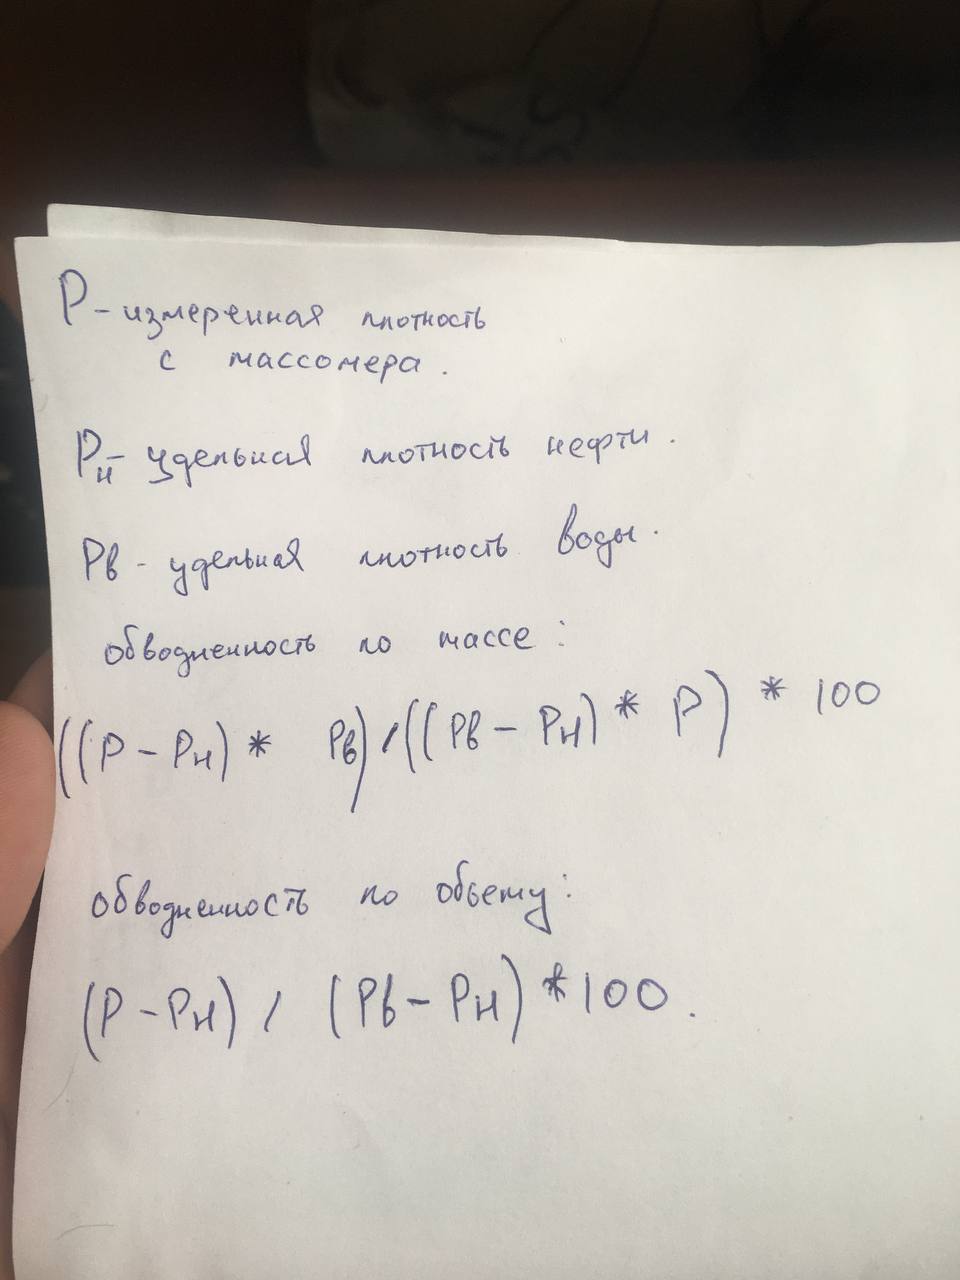 P - измеренная плотность
с массомера.
Pн - удельная плотность нефти.
Pв - удельная плотность воды.
обводненность по массе:
((P - Pн) * Pв) / ((Pв - Pн) * P) * 100
обводненность по обьему:
(P - Pн) / (Pв - Pн) * 100.